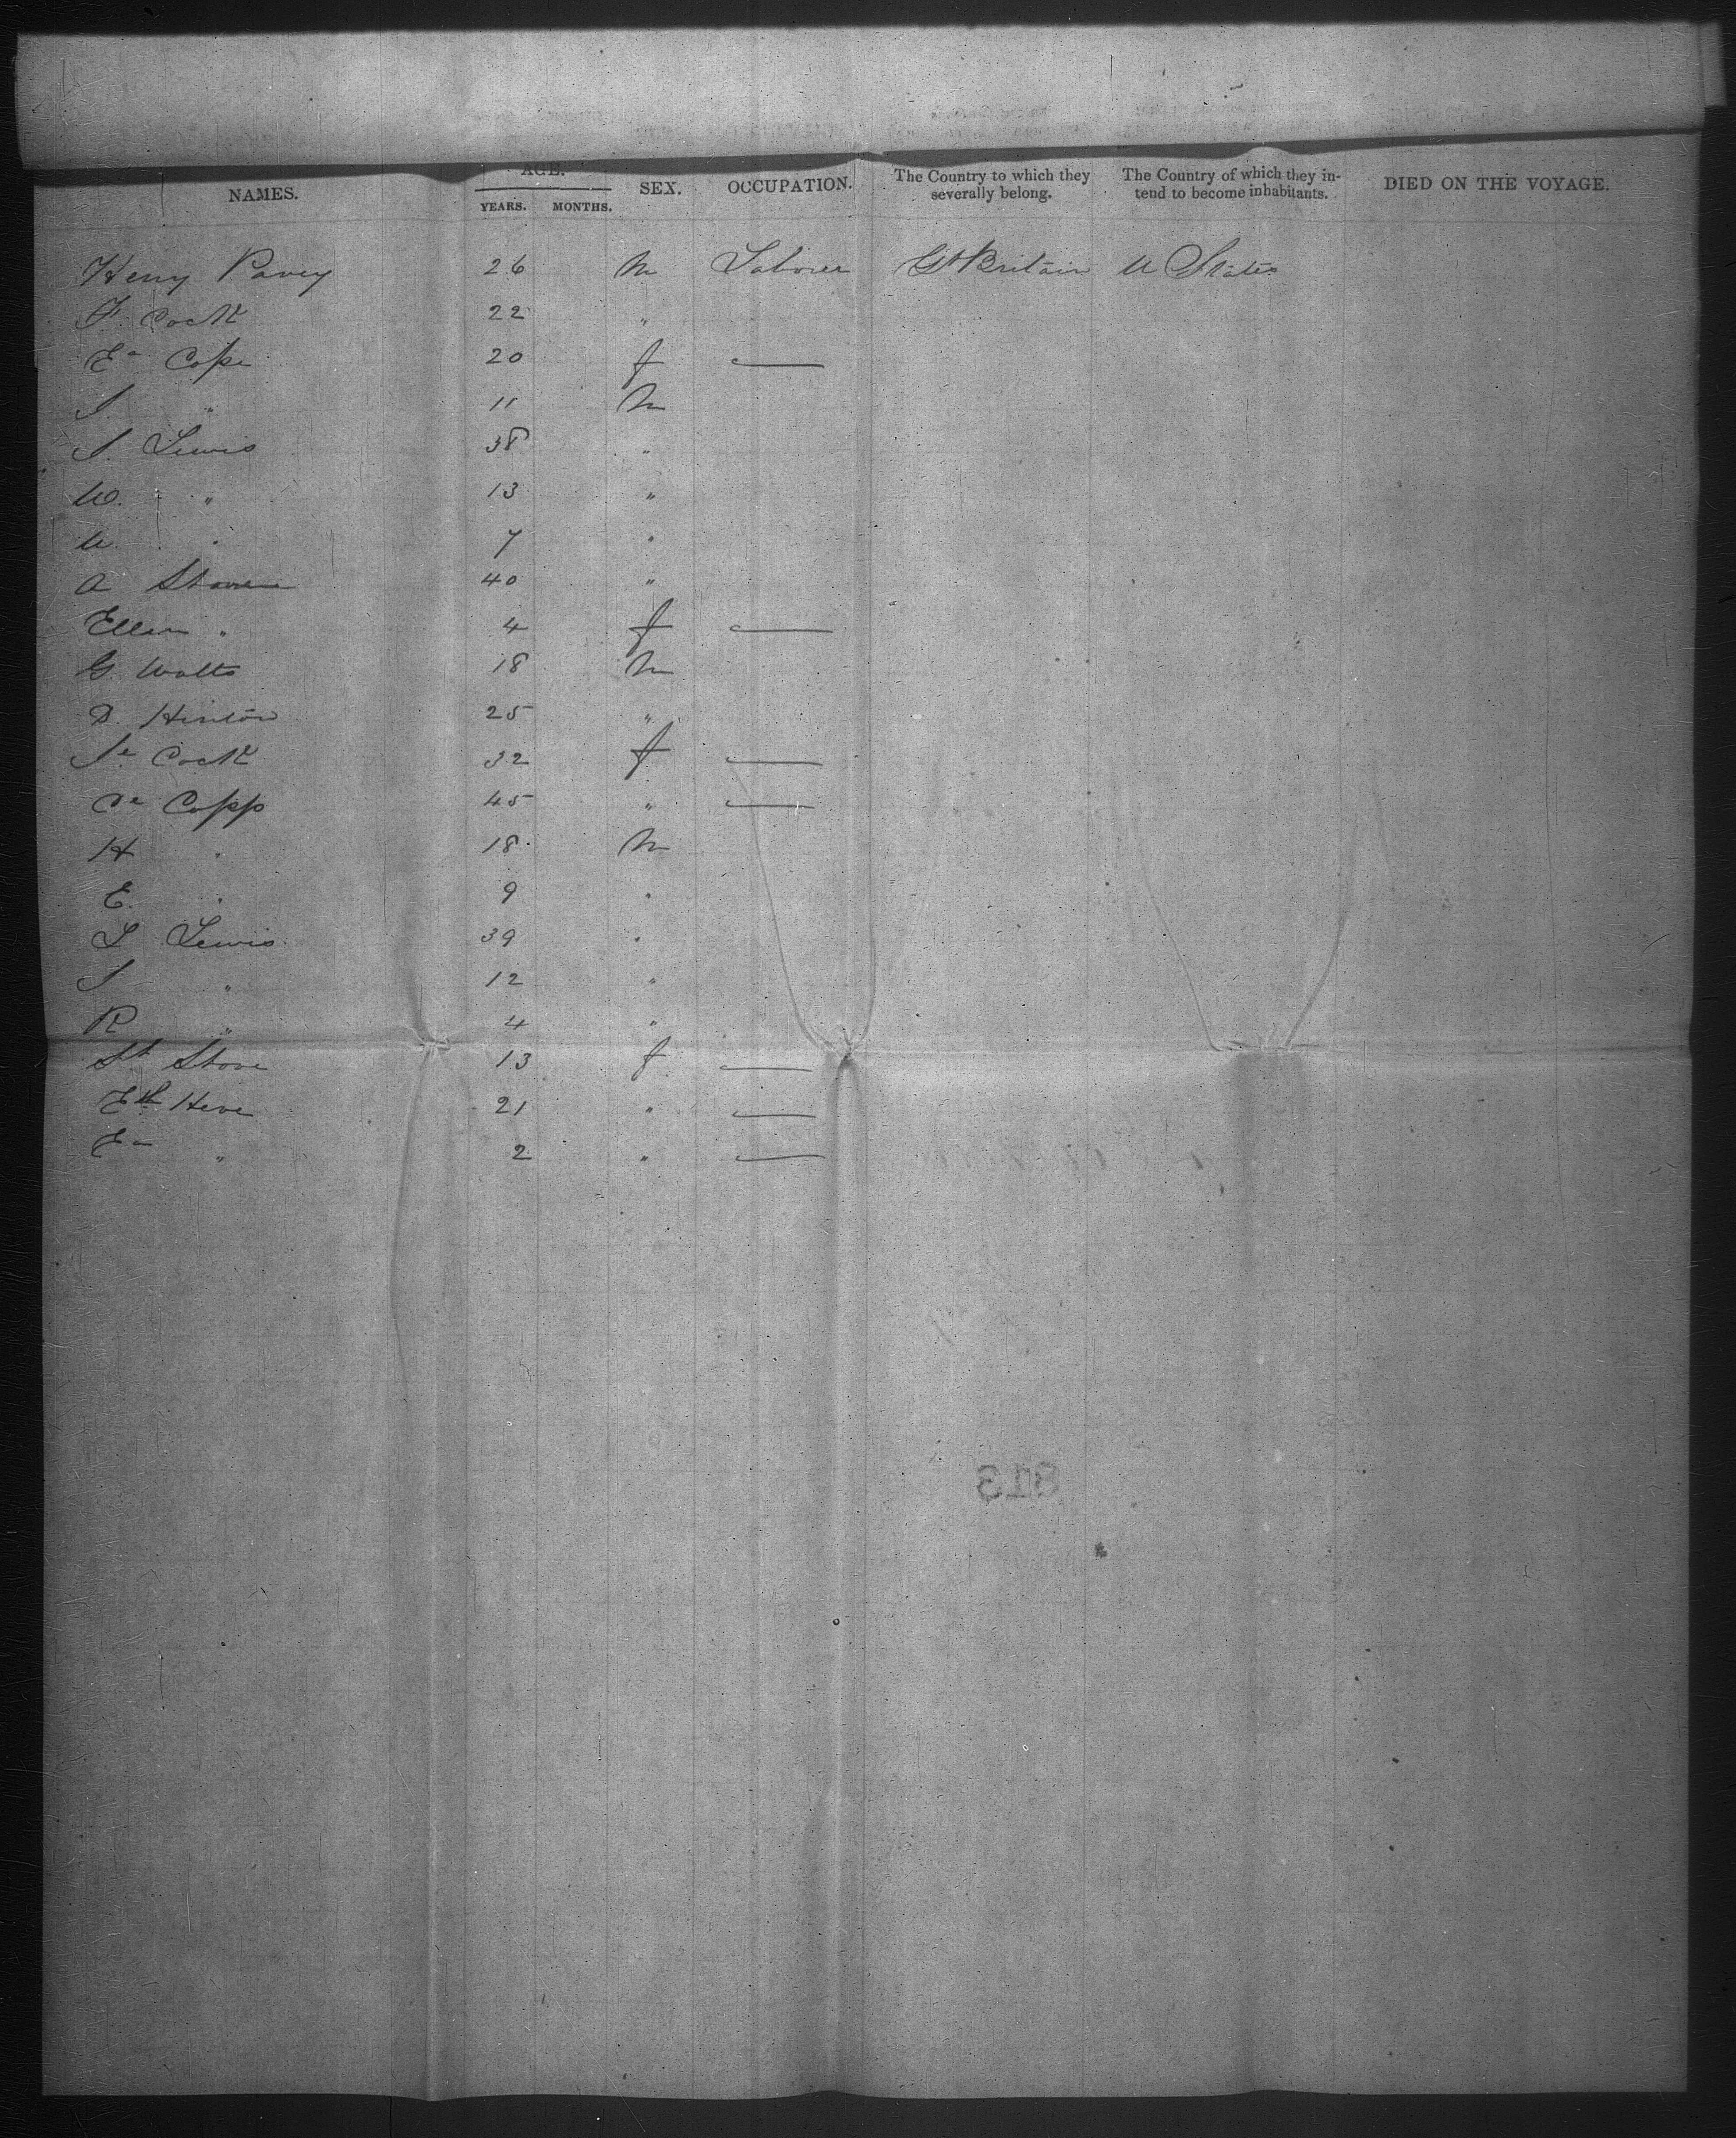 NAMES. AGE. SEX. OCCUPATION. The Country to which they severally belong. The Country of which they intend to become inhabitants. DIED ON THE VOYAGE.
YEARS. MONTHS.
Henry Pavey 26 m Laborer Gt Britain U States
F. Cock 22 "
Ea Cope 20 f —
S. " 11 m
S. Lewis 38 "
W. " 13 "
U. " 7 "
A 40 "
Ellen " 4 f —
G. Watts 18 m
D. Hinton 25 "
Se Cock 32 f —
Ce Copp 45 " —
H " 18 m
E. " 9 "
L Lewis 39 "
S " 12 "
R " 4 "
St Stove 13 f —
Eth Heve 21 " —
Ea " 2 " —
813